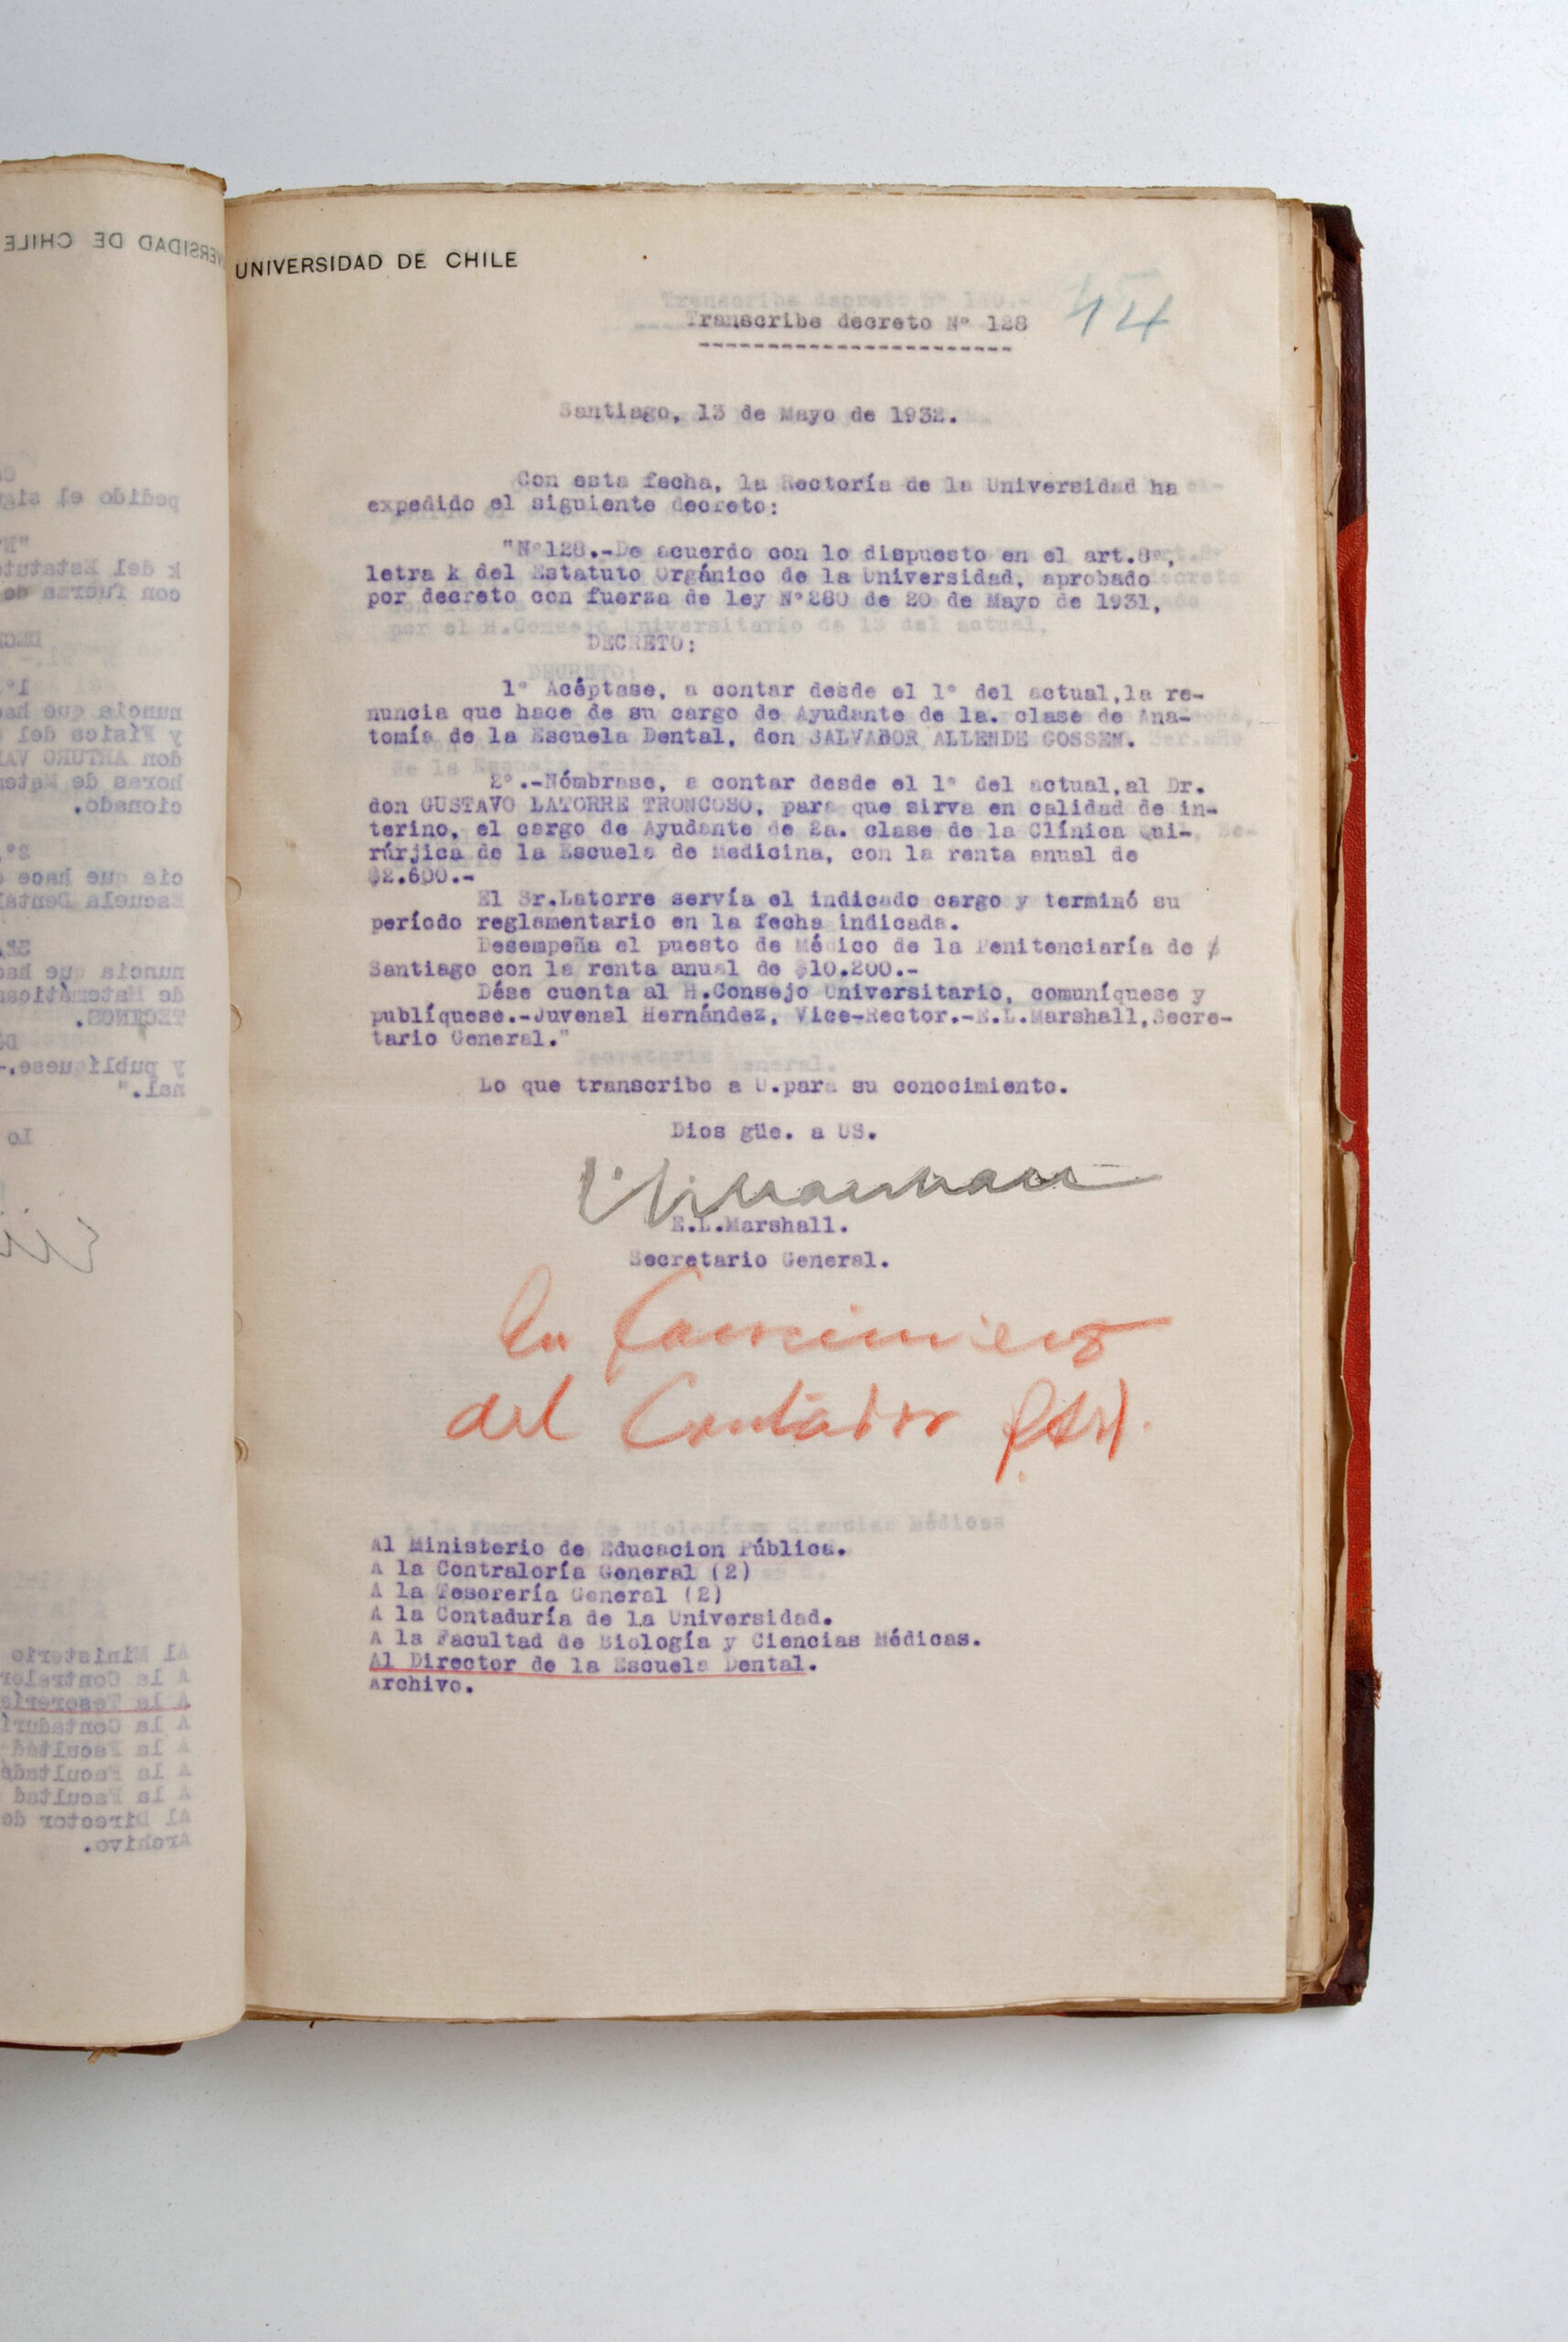 UNIVERSIDAD DE CHILE
Transcribe decreto N° 128
44
Santiago, 13 de Mayo de 1932.
Con esta fecha, la Rectoría de la Universidad ha
expedido el siguiente decreto:
"N°128.-De acuerdo con lo dispuesto en el art.8°,
letra k del Estatuto Orgánico de la Universidad, aprobado
por decreto con fuerza de ley N°280 de 20 de Mayo de 1931,
DECRETO:
1° Acéptase, a contar desde el 1° del actual,la re-
nuncia que hace de su cargo de Ayudante de 1a. clase de Ana-
tomía de la Escuela Dental, don SALVADOR ALLENDE GOSSEM.
2°.-Nómbrase, a contar desde el 1° del actual,al Dr.
don GUSTAVO LATORRE TRONCOSO, para que sirva en calidad de in-
terino, el cargo de Ayudante de 2a. clase de la Clínica Qui-
rúrjica de la Escuela de Medicina, con la renta anual de
$2.600.-
El Sr.Latorre servía el indicado cargo y terminó su
período reglamentario en la fecha indicada.
Desempeña el puesto de Médico de la Penitenciaría de
Santiago con la renta anual de $10.200.-
Dése cuenta al H.Consejo Universitario, comuníquese y
publíquese.-Juvenal Hernández, Vice-Rector.-E.L.Marshall,Secre-
tario General."
Lo que transcribo a U.para su conocimiento.
Dios güe. a US.
E.L.Marshall.
Secretario General.
del Contador
Al Ministerio de Educacion Pública.
A la Contraloría General (2)
A la Tesorería General (2)
A la Contaduría de la Universidad.
A la Facultad de Biología y Ciencias Médicas.
Al Director de la Escuela Dental.
Archivo.